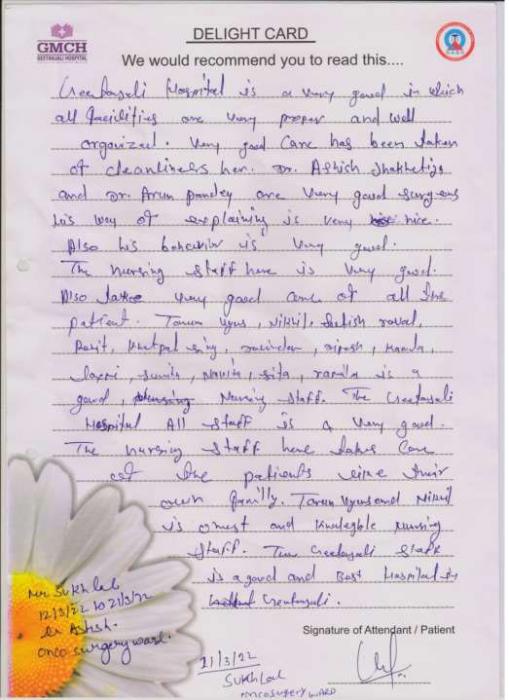 GMCH
GEETANJALI HOSPITAL
DELIGHT CARD
We would recommend you to read this....
Geetanjali Hospital is a very good in which
all facilities are very proper and well
organized. Very good Care has been taken
of cleanliness her. Dr. Ashish
and Dr. Arun pandey are very good surgeons
his way of explaining is very nice.
Also his behavior is very good.
The nursing staff here is very good.
Also take very good care of all the
patient. Tarun Vyas, Nikhil, raval,
sing, 
laxmi, sunita, sita, is a
good, Nursing Staff. The Geetanjali
Hospital All staff is a very good.
The nursing staff here takes Care
of the patients like their
own family. Tarun Vyas and Nikhil
is onest and nursing
Staff. The Geetanjali Staff
is a good and Best Hospital
Geetanjali.
Mr Sukhlal
12/3/22 to 21/3/22
Dr Ashish.
onco surgery ward.
Signature of Attendant / Patient
21/3/22
Sukhlal
oncosurgery WARD